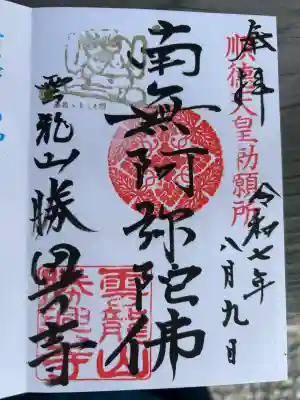 奉拝
順徳天皇勅願所
令和七年
八月九日
南無阿弥陀佛
雲龍山勝興寺
雲龍山
勝興寺